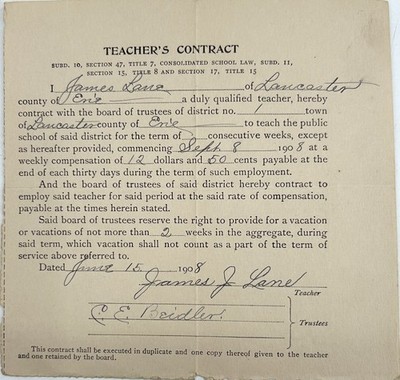 TEACHER'S CONTRACT
SUBD. 10, SECTION 47, TITLE 7, CONSOLIDATED SCHOOL LAW, SUBD. 11,
SECTION 15, TITLE 8 AND SECTION 17, TITLE 15
I James Lane of Lancaster
county of Erie a duly qualified teacher, hereby
contract with the board of trustees of district no. 1 town
of Lancaster county of Erie to teach the public
school of said district for the term of consecutive weeks, except
as hereafter provided, commencing Sept 8 1908 at a
weekly compensation of 12 dollars and 50 cents payable at the
end of each thirty days during the term of such employment.
And the board of trustees of said district hereby contract to
employ said teacher for said period at the said rate of compensation,
payable at the times herein stated.
Said board of trustees reserve the right to provide for a vacation
or vacations of not more than 2 weeks in the aggregate, during
said term, which vacation shall not count as a part of the term of
service above referred to.
Dated June 15 1908
James J Lane
Teacher
C. E. Beidler.
Trustees
This contract shall be executed in duplicate and one copy thereof given to the teacher
and one retained by the board.